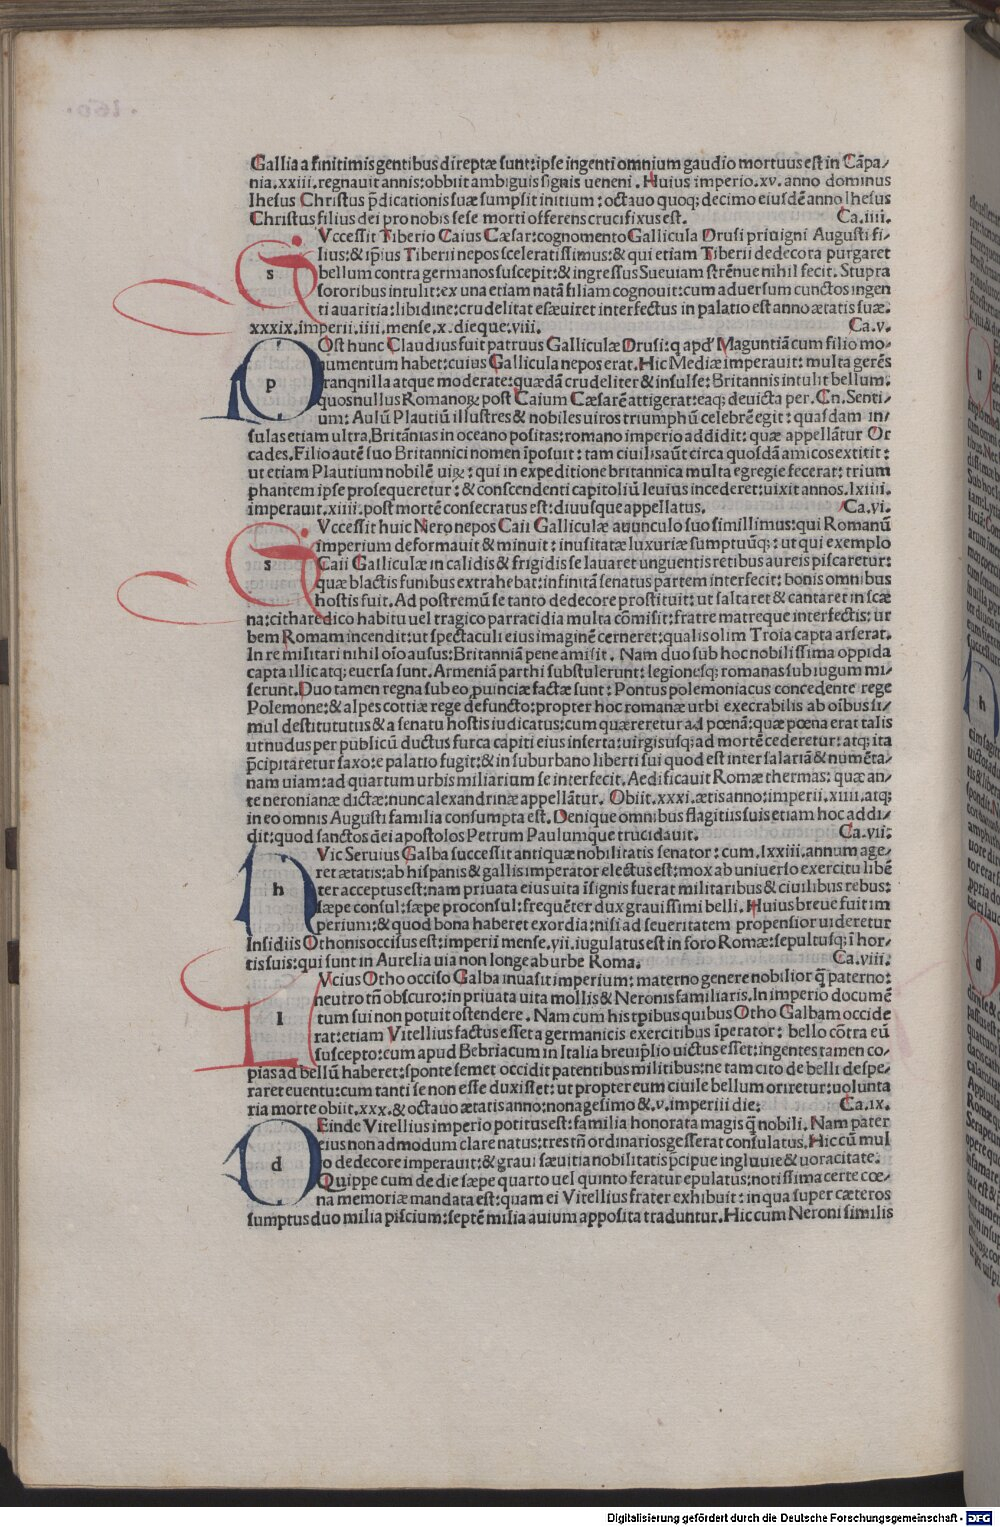 Gallia a finitimis gentibus direptæ sunt: ipse ingenti omnium gaudio mortuus est in Cāpa/
nia.xxiii.regnauit annis: obbiit ambiguis signis ueneni. Huius imperio.xv. anno dominus
Ihesus Christus p̄dicationis suæ sumpsit initium: octauo quoq; decimo eiusdē anno Ihesus
Christus filius dei pro nobis sese morti offerens crucifixus est. Ca.iiii.
s Vccessit Tiberio Caius Cæsar: cognomento Gallicula Drusi priuigni Augusti fi-
lius: & ip̄ius Tiberii nepos sceleratissimus: & qui etiam Tiberii dedecora purgaret
bellum contra germanos suscepit: & ingressus Sueuiam strēnue nihil fecit. Stupra
sororibus intulit: ex una etiam natā filiam cognouit: cum aduersum cunctos ingen
ti auaritia: libidine: crudelitat esæuiret interfectus in palatio est anno ætatis suæ.
xxxix.imperii.iiii.mense.x.dieque.viii. Ca.v.
p Ost hunc Claudius fuit patruus Galliculæ Drusi: q apd' Maguntiā cum filio mo-
numentum habet: cuius Gallicula nepos erat. Hic Mediæ imperauit: multa gerēs
tranquilla atque moderate: quædā crudeliter & insulse: Britannis intulit bellum:
quos nullus Romanoꝝ post Caium Cæsarē attigerat: eaq; deuicta per. Cn. Senti-
um: Aulū Plautiū illustres & nobiles uiros triumphū celebrē egit: quasdam in/
sulas etiam ultra, Britānias in oceano positas: romano imperio addidit: quæ appellātur Or
cades. Filio autē suo Britannici nomen īposuit: tam ciuilis aūt circa quosdā amicos extitit:
ut etiam Plautium nobilē uiꝝ: qui in expeditione britannica multa egregie fecerat: trium
phantem ipse prosequeretur: & conscendenti capitoliū leuius incederet: uixit annos.lxiiii.
imperauit.xiiii.post mortē consecratus est: diuusque appellatus. Ca.vi.
s Vccessit huic Nero nepos Caii Galliculæ auunculo suo simillimus: qui Romanū
imperium deformauit & minuit: inusitatæ luxuriæ sumptuūq;: ut qui exemplo
Caii Galliculæ in calidis & frigidis se lauaret unguentis retibus aureis piscaretur:
quæ blactis funibus extrahebat: infinitā senatus partem interfecit: bonis omnibus
hostis fuit. Ad postremū se tanto dedecore prostituit: ut saltaret & cantaret in scæ
na: citharedico habitu uel tragico parracidia multa cōmisit: fratre matreque interfectis: ur
bem Romam incendit: ut spectaculi eius imaginē cerneret: qualis olim Troia capta arserat.
In re militari nihil oīo ausus: Britanniā pene amisit. Nam duo sub hoc nobilissima oppida
capta illic atq; euersa sunt. Armeniā parthi substulerunt: legionesq; romanas sub iugum mi-
serunt. Duo tamen regna sub eo ꝓuinciæ factæ sunt: Pontus polemoniacus concedente rege
Polemone: & alpes cottiæ rege defuncto: propter hoc romanæ urbi execrabilis ab oībus si-
mul destitututus & a senatu hostis iudicatus: cum quæreretur ad pœnā: quæ pœna erat talis
ut nudus per publicū ductus furca capiti eius inserta: uirgis usq; ad mortē cederetur: atq; ita
p̄cipitaretur saxo: e palatio fugit: & in suburbano liberti sui quod est inter salariā & numēta-
nam uiam: ad quartum urbis miliarium se interfecit. Aedificauit Romæ thermas: quæ an-
te neronianæ dictæ: nunc alexandrinæ appellātur. Obiit.xxxi.ætis anno: imperii.xiiii.atq;
in eo omnis Augusti familia consumpta est. Denique omnibus flagitiis suis etiam hoc addi-
dit: quod sanctos dei apostolos Petrum Paulumque trucidauit. Ca.vii.
h Vic Seruius Galba successit antiquæ nobilitatis senator: cum.lxxiii.annum age-
ret ætatis: ab hispanis & gallis imperator electus est: mox ab uniuerso exercitu libē
ter acceptus est: nam priuata eius uita īsignis fuerat militaribus & ciuilibus rebus:
sæpe consul: sæpe proconsul: frequēter dux grauissimi belli. Huius breue fuit im
perium: & quod bona haberet exordia: nisi ad seueritatem propensior uideretur
Insidiis Othonis occisus est: imperii mense.vii.iugulatus est in foro Romæ: sepultusq; ī hor-
tis suis: qui sunt in Aurelia uia non longe ab urbe Roma. Ca.viii.
l Vcius Otho occiso Galba inuasit imperium: materno genere nobilior q̄ paterno:
neutro tn̄ obscuro: in priuata uita mollis & Neronis familiaris. In imperio documē
tum sui non potuit ostendere. Nam cum hist pibus quibus Otho Galbam occide
rat: etiam Vitellius factus esset a germanicis exercitibus īperator: bello cōtra eū
suscepto: cum apud Bebriacum in Italia breui p̄lio uictus esset: ingentes tamen co-
pias ad bellū haberet: sponte semet occidit patentibus militibus: ne tam cito de belli despe-
raret euentu: cum tanti se non esse duxisset: ut propter eum ciuile bellum oriretur: uolunta
ria morte obiit.xxx.& octauo ætatis anno: nonagesimo &.v.imperiii die: Ca.ix.
d Einde Vitellius imperio potitus est: familia honorata magis q̄ nobili. Nam pater
eius non admodum clare natus: tres tn̄ ordinarios gesserat consulatus. Hic cū mul
to dedecore imperauit: & graui sæuitia nobilitatis p̄cipue ingluuie & uoracitate.
Quippe cum de die sæpe quarto uel quinto feratur epulatus: notissima certe cœ-
na memoriæ mandata est: quam ei Vitellius frater exhibuit: in qua super cæteros
sumptus duo milia piscium: septē milia auium apposita traduntur. Hic cum Neroni similis
Digitalisierung gefördert durch die Deutsche Forschungsgemeinschaft - DFG